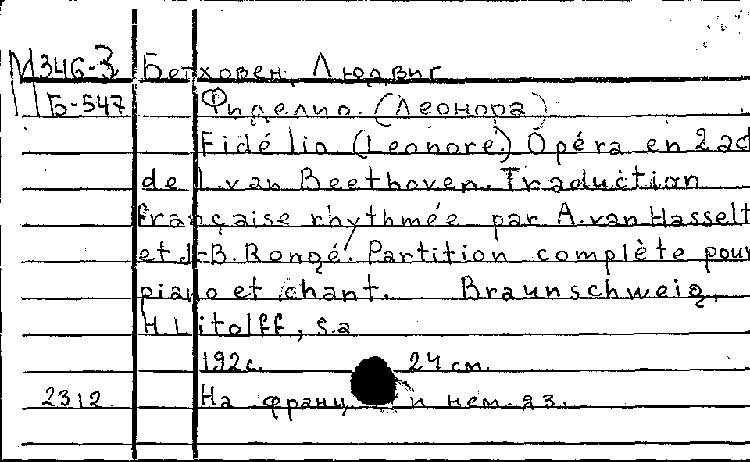 М346-3 Бетховен, Людвиг
Б-547 Фиделио. (Леонора)
Fidélio (Leonore.) Opéra en 2 ac
de L. van Beethoven. Traduction
française rhythmée par A. van Hasselt
et J-B. Rongé. Partition complète pour
piano et chant. Braunschweig,
H. Litolff, s.a
192с. 24 см.
2312 На франц и нем. яз.